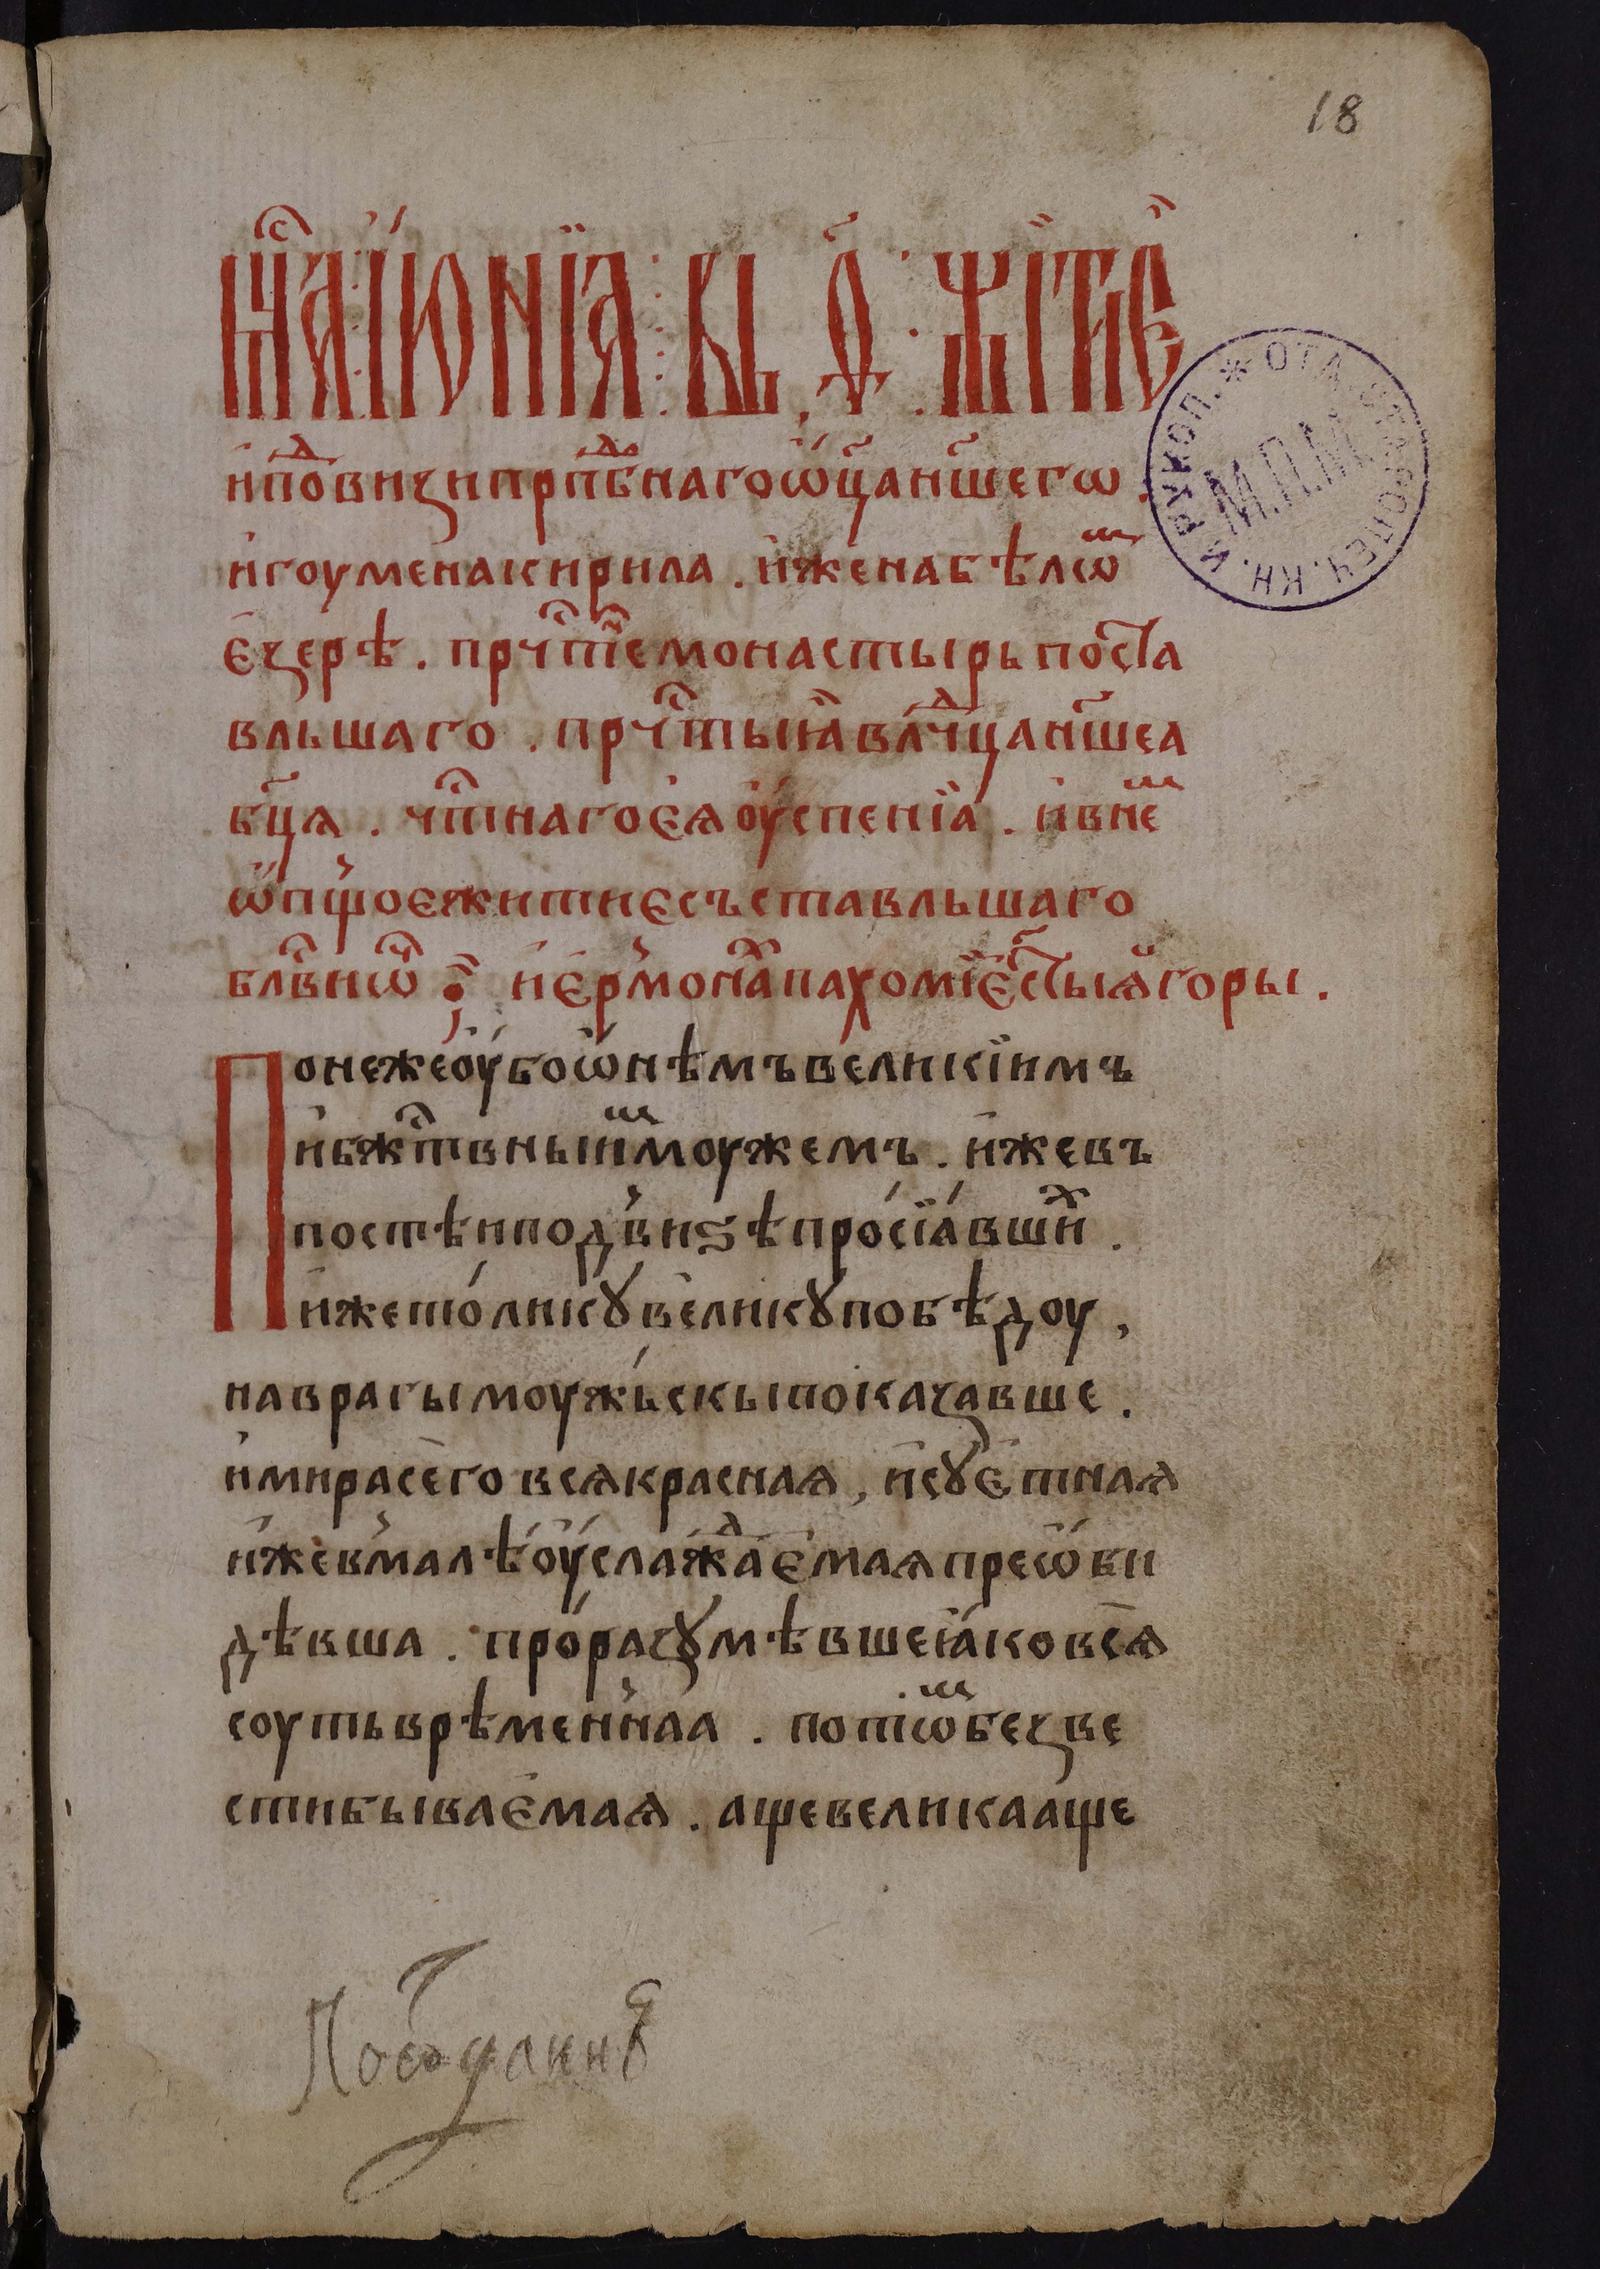 18
мⷭ҇ца їюнїа въ ѳ҃ житїе
и поⷣвиꙁи прпⷣбнаго ѿца нш҃егѡ .
игоумена кирила . иже на бѣлѡⷨ
еꙁерѣ . прчⷭ҇тѣⷨе монастырь поста
вльшаго . прчⷭ҇тыѧ влⷣчца нш҃еа
бц҃ѧ . чⷭ҇тнаго еѧ оуспенїа . и в неⷨ
ѡпщое житие съставльшаго
блⷭ҇внѡⷨ ⁘ иермонаⷯ пахомїе ст҃ыѧ горы .
Понеже оубо ѡ нѣмъ великїимъ
и бжⷭ҇твныиⷨ моужемъ . иже въ
постѣ и подвиѕѣ просїавшиⷯ .
иже толикꙋ великꙋ побѣдоу ,
на врагы моужьскы покаꙁавше .
и мира сего всѧ краснаꙗ , и сꙋетнаѧ
иже вмалѣ оуслажⷣаемаѧ преѡби
дѣвша . прораꙁꙋмѣвше ꙗко всѧ
соуть врѣменнаа . потѡⷨ беꙁ ве
сти бываемаѧ . аще велика аще
ОТД. СТАРОПЕЧ. КН. И РУКОП. *
М.П.М.